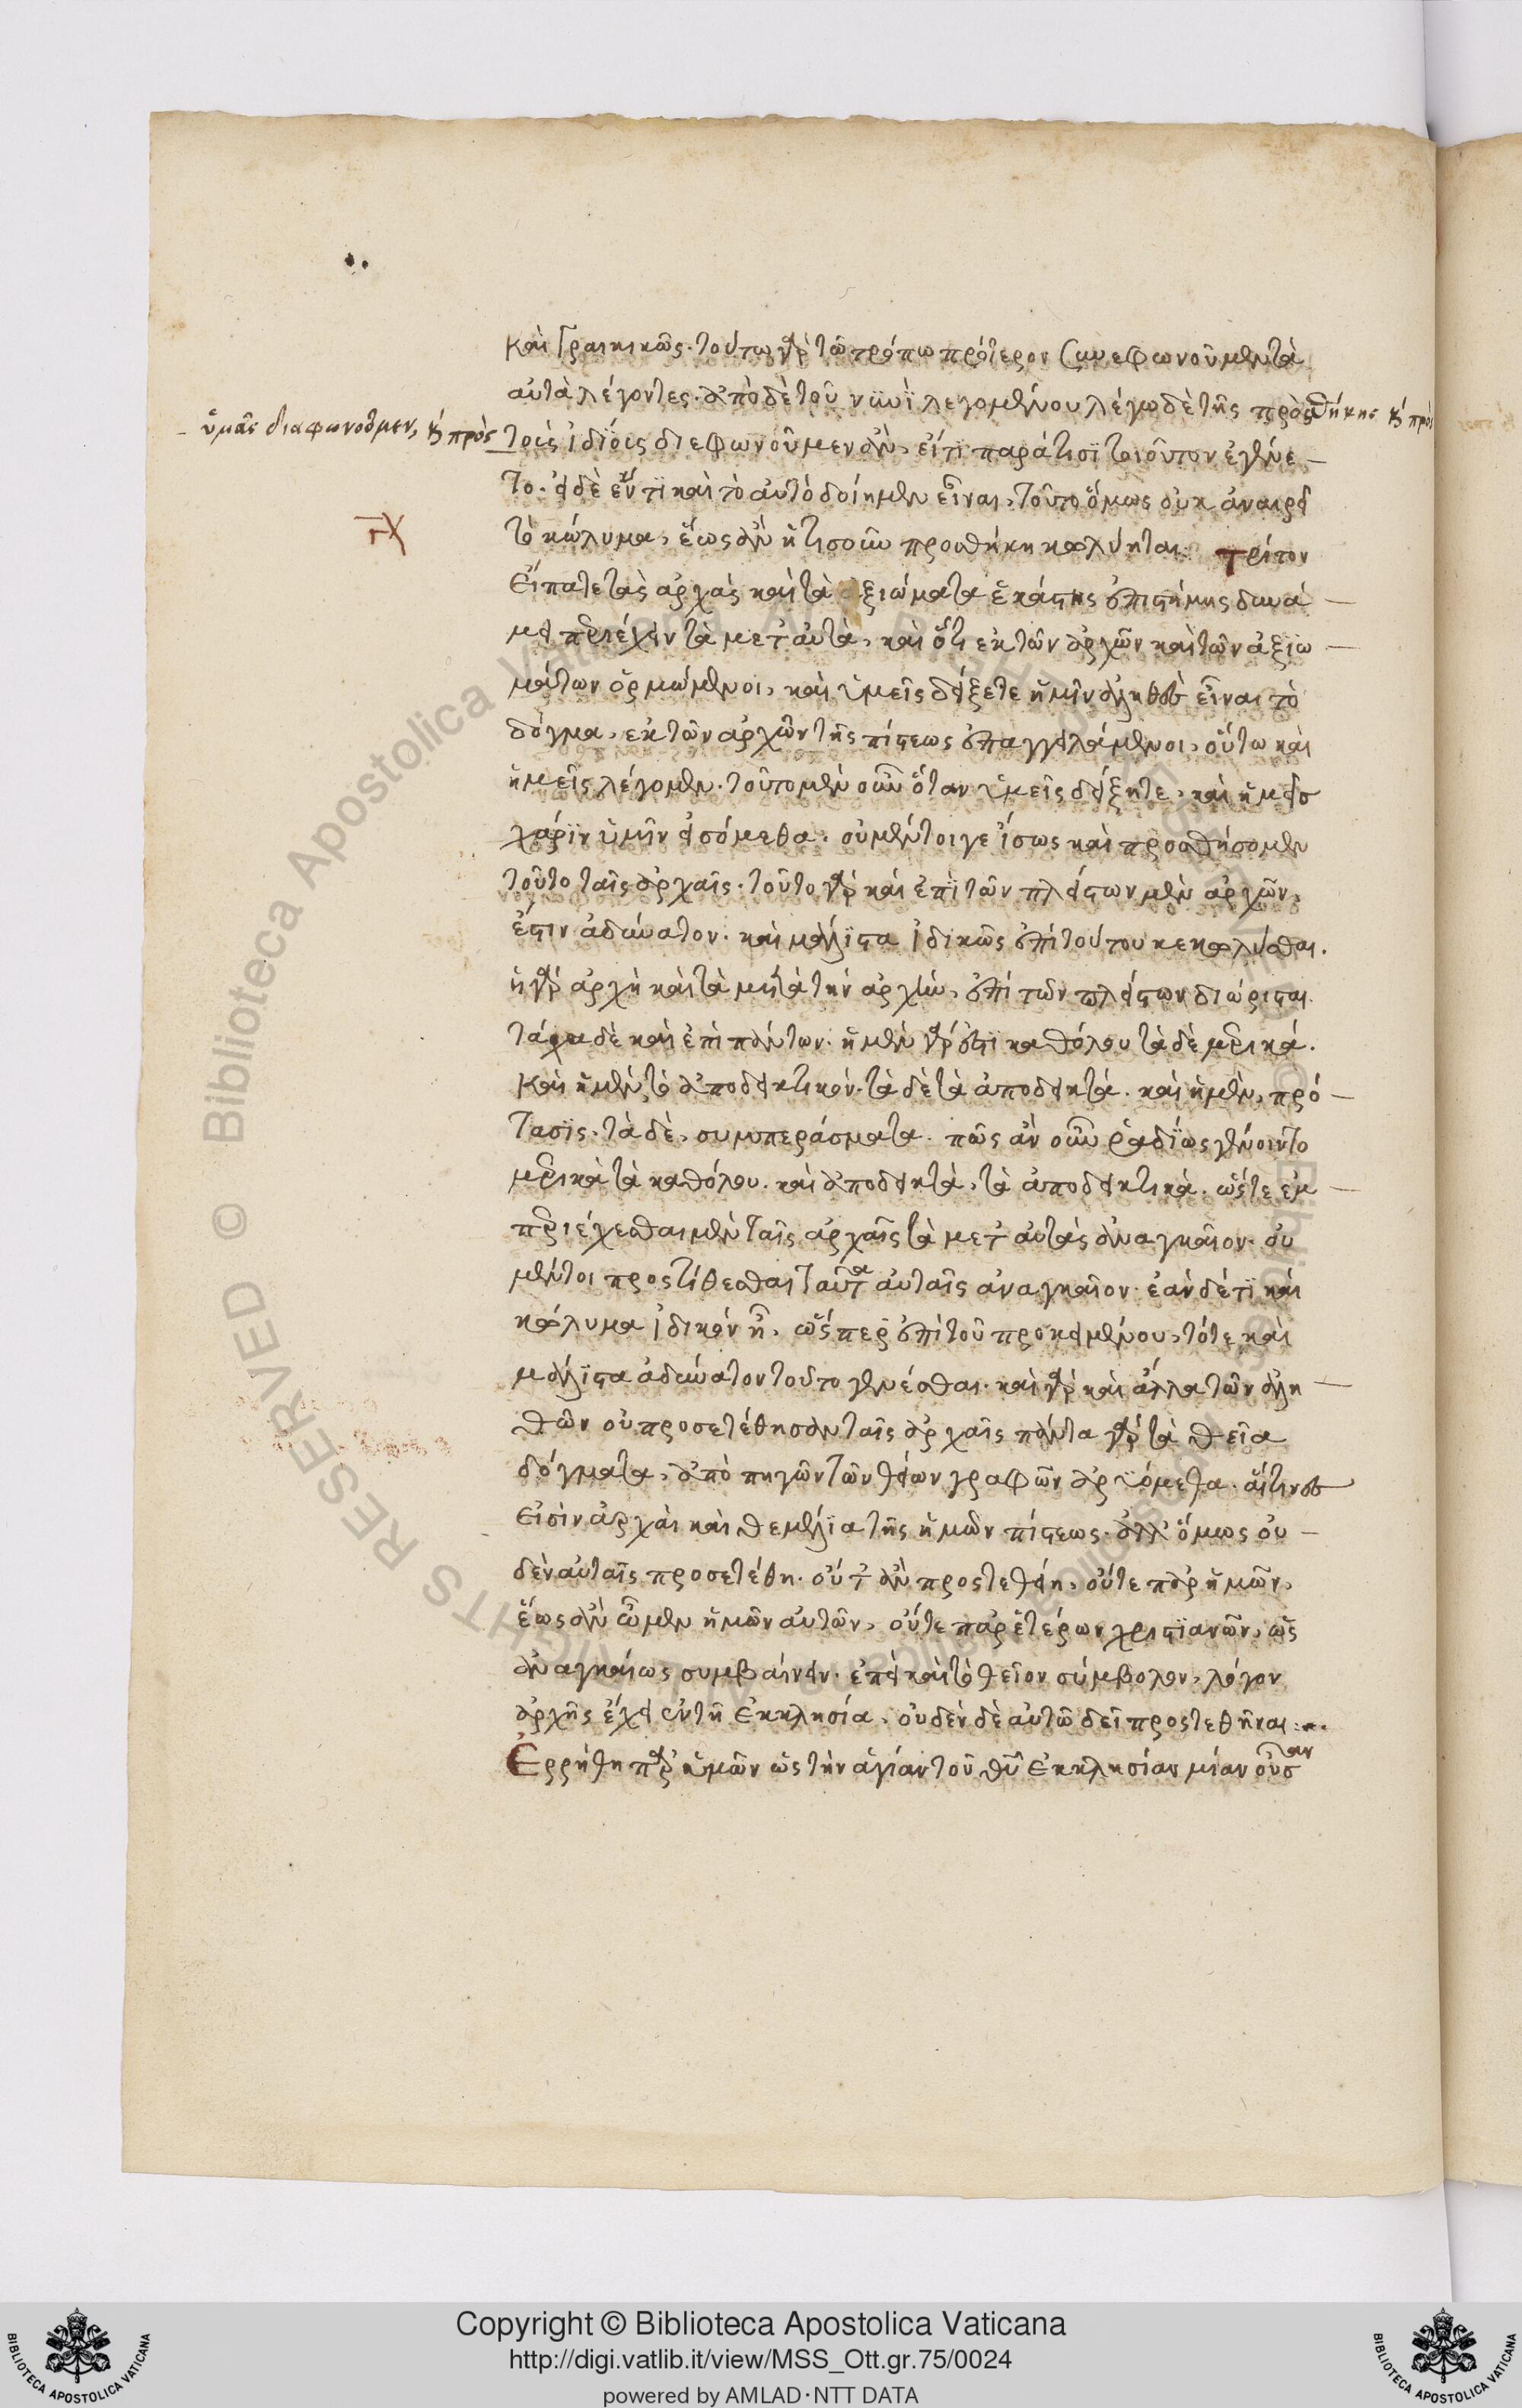 καὶ Γραικικῶς. τούτω γὰρ τῶ τρόπω πρότερον συνεφωνοῦμεν τὰ
αὐτὰ λέγοντες. ἀπὸ δὲ τοῦ νϋνῒ λεγομένου λέγω δὲ τῆς προσθήκης καὶ πρὸς
ὑμᾶς διαφωνοῦμεν, καὶ πρὸς
τοῖς ἰδίοις διεφωνοῦμεν ἂν, εἴ τι παρά τισϊ τοιοῦτον ἐγένε
το. εἰ δὲ ἕν τι καὶ τὸ αὐτὸ δοίημεν εἶναι, τοῦτο ὅμως οὐκ ἀναιρεῖ
τὸ κώλυμα, ἕως ἂν ἡτισοῦν προσθήκη κωλύηται. τρίτον
Εἴπατε τὰς ἀρχὰς καὶ τὰ ἀξιώματα ἑκάστης ἐπιστήμης δυνά
μει περιέχειν τὰ μετ' αὐτὰ, καὶ ὅτι ἐκ τῶν ἀρχῶν καὶ τῶν ἀξϊω
μάτων ὁρμώμενοι, καὶ ὑμεῖς δείξετε ἡμῖν ἀληθὲς εἶναι τὸ
δόγμα, ἐκ τῶν ἀρχῶν τῆς πίστεως ἐπαγγειλάμενοι, οὕτω καὶ
ἡμεῖς λέγομεν. τοῦτο μὲν οὖν ὅταν ὑμεῖς δείξητε, καὶ ἡμεῖς
χάρϊν ὑμῖν εἰσόμεθα. οὐ μέντοιγε ἴσως καὶ προσθήσομεν
τοῦτο ταῖς ἀρχαῖς. τοῦτο γὰρ καὶ ἐπὶ τῶν πλείστων μὲν ἀρχῶν,
ἐστιν ἀδύνατον. καὶ μάλϊστα ἰδικῶς ἐπὶ τούτου κεκωλύσθαι.
ἡ γὰρ ἀρχὴ καὶ τὰ μετὰ τὴν ἀρχὴν, ἐπὶ τῶν πλείστων διώρισται.
τάχα δὲ καὶ ἐπὶ πάντων. ἡ μὲν γάρ ἐστι καθόλου τὰ δὲ μερικά.
καὶ ἡ μὲν τὸ ἀποδεικτικόν. τὰ δὲ τὰ ἀποδεικτά. καὶ ἡ μὲν, πρό
τασϊς. τὰ δὲ, συμπεράσματα. πῶς ἂν οὖν ῥαδϊως γένοιντο
μερικὰ τὰ καθόλου. καὶ ἀποδεικτὰ, τὰ ἀποδεικτικά. ὥστε ἐμ
περιέχεσθαι μὲν ταῖς ἀρχαῖς τὰ μετ' αὐτὰς ἀναγκαῖον. οὐ
μέντοι προστίθεσθαι ταῦτα αὐταῖς ἀναγκαῖον. ἐὰν δέ τϊ καὶ
κώλυμα ἰδικὸν ᾖ, ὥσπερ ἐπὶ τοῦ προκειμένου, τότε καὶ
μάλϊστα ἀδύνατον τοῦτο γενέσθαι. καὶ γὰρ καὶ ἄλλα τῶν ἀλη
θῶν οὐ προσετέθησαν ταῖς ἀρχαῖς πάντα γὰρ τὰ θεῖα
δόγματα, ἀπὸ πηγῶν τῶν θείων γραφῶν ἀρυόμεθα. αἵτινες
εἰσὶν ἀρχαὶ καὶ θεμέλϊα τῆς ἡμῶν πίστεως. ἀλλ' ὅμως οὐ
δὲν αὐταῖς προσετέθη. οὔτ' ἂν προστεθείη, οὔτε παρ' ἡμῶν,
ἕως ἂν ὦμεν ἡμῶν αὐτῶν, οὔτε παρ' ἑτέρων χριστϊανῶν, ὡς
ἀναγκαίως συμβαίνειν. ἐπεὶ καὶ τὸ θεῖον σύμβολον, λόγον
ἀρχῆς ἔχει ἐν τῇ Ἐκκλησία, οὐδὲν δὲ αὐτῶ δεῖ προστεθῆναι:
Ἐρρήθη παρ' ἡμῶν ὡς τὴν ἁγίαν τοῦ θυ Ἐκκλησίαν μίαν οὖσαν
Copyright © Biblioteca Apostolica Vaticana
http://digi.vatlib.it/view/MSS_Ott.gr.75/0024
powered by AMLAD·NTT DATA